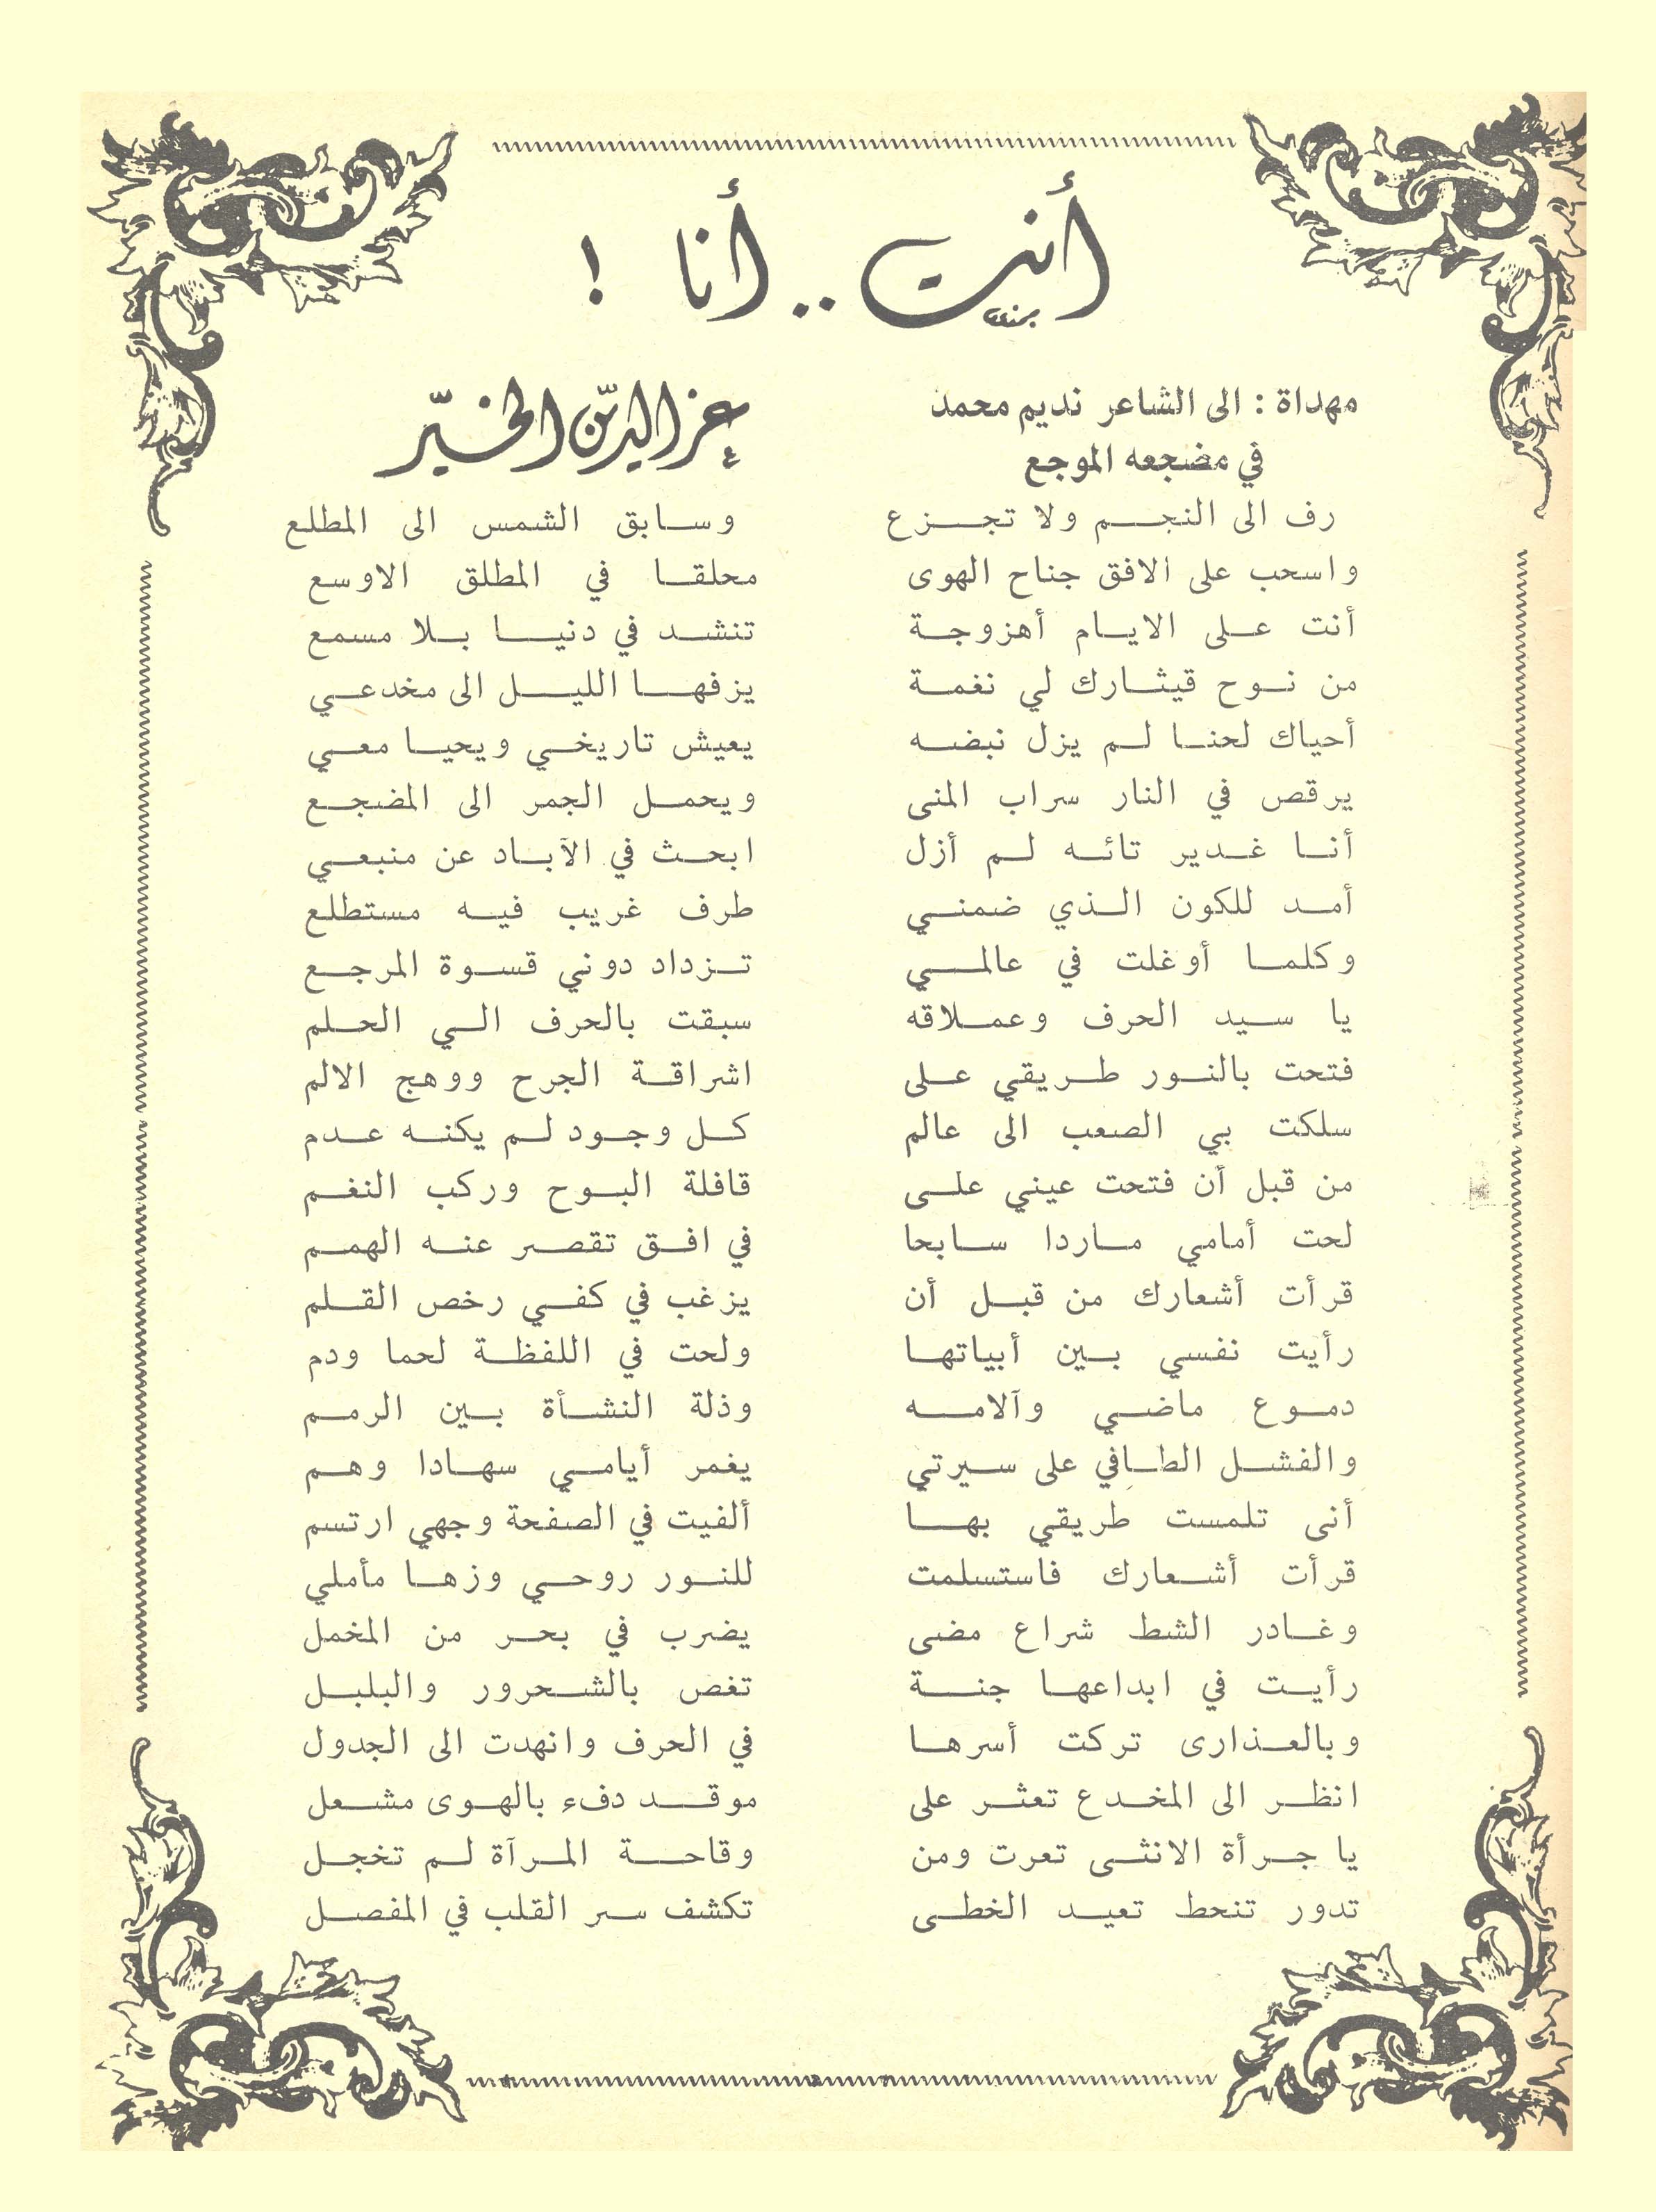 أنت .. أنا !
مهداة : الى الشاعر نديم محمد
في مضجعه الموجع
عز الدين الخيّر
رف الى النجم ولا تجزع وسابق الشمس الى المطلع
واسحب على الافق جناح الهوى محلقا في المطلق الاوسع
أنت على الايام أهزوجة تنشد في دنيا بلا مسمع
من نوح قيثارك لي نغمة يزفها الليل الى مخدعي
أحياك لحنا لم يزل نبضه يعيش تاريخي ويحيا معي
يرقص في النار سراب المنى ويحمل الجمر الى المضجع
أنا غدير تائه لم أزل ابحث في الآباد عن منبعي
أمد للكون الذي ضمني طرف غريب فيه مستطلع
وكلما أوغلت في عالمي تزداد دوني قسوة المرجع
يا سيد الحرف وعملاقه سبقت بالحرف الي الحلم
فتحت بالنور طريقي على اشراقة الجرح ووهج الالم
سلكت بي الصعب الى عالم كل وجود لم يكنه عدم
من قبل أن فتحت عيني على قافلة البوح وركب النغم
لحت أمامي ماردا سابحا في افق تقصر عنه الهمم
قرأت أشعارك من قبل أن يزغب في كفي رخص القلم
رأيت نفسي بين أبياتها ولحت في اللفظة لحما ودم
دموع ماضي وآلامه وذلة النشأة بين الرمم
والفشل الطافي على سيرتي يغمر أيامي سهادا وهم
أنى تلمست طريقي بها ألفيت في الصفحة وجهي ارتسم
قرأت أشعارك فاستسلمت للنور روحي وزها مأملي
وغادر الشط شراع مضى يضرب في بحر من المخمل
رأيت في ابداعها جنة تغص بالشحرور والبلبل
وبالعذارى تركت أسرها في الحرف وانهدت الى الجدول
انظر الى المخدع تعثر على موقد دفء بالهوى مشعل
يا جرأة الانثى تعرت ومن وقاحة المرآة لم تخجل
تدور تنحط تعيد الخطى تكشف سر القلب في المفصل